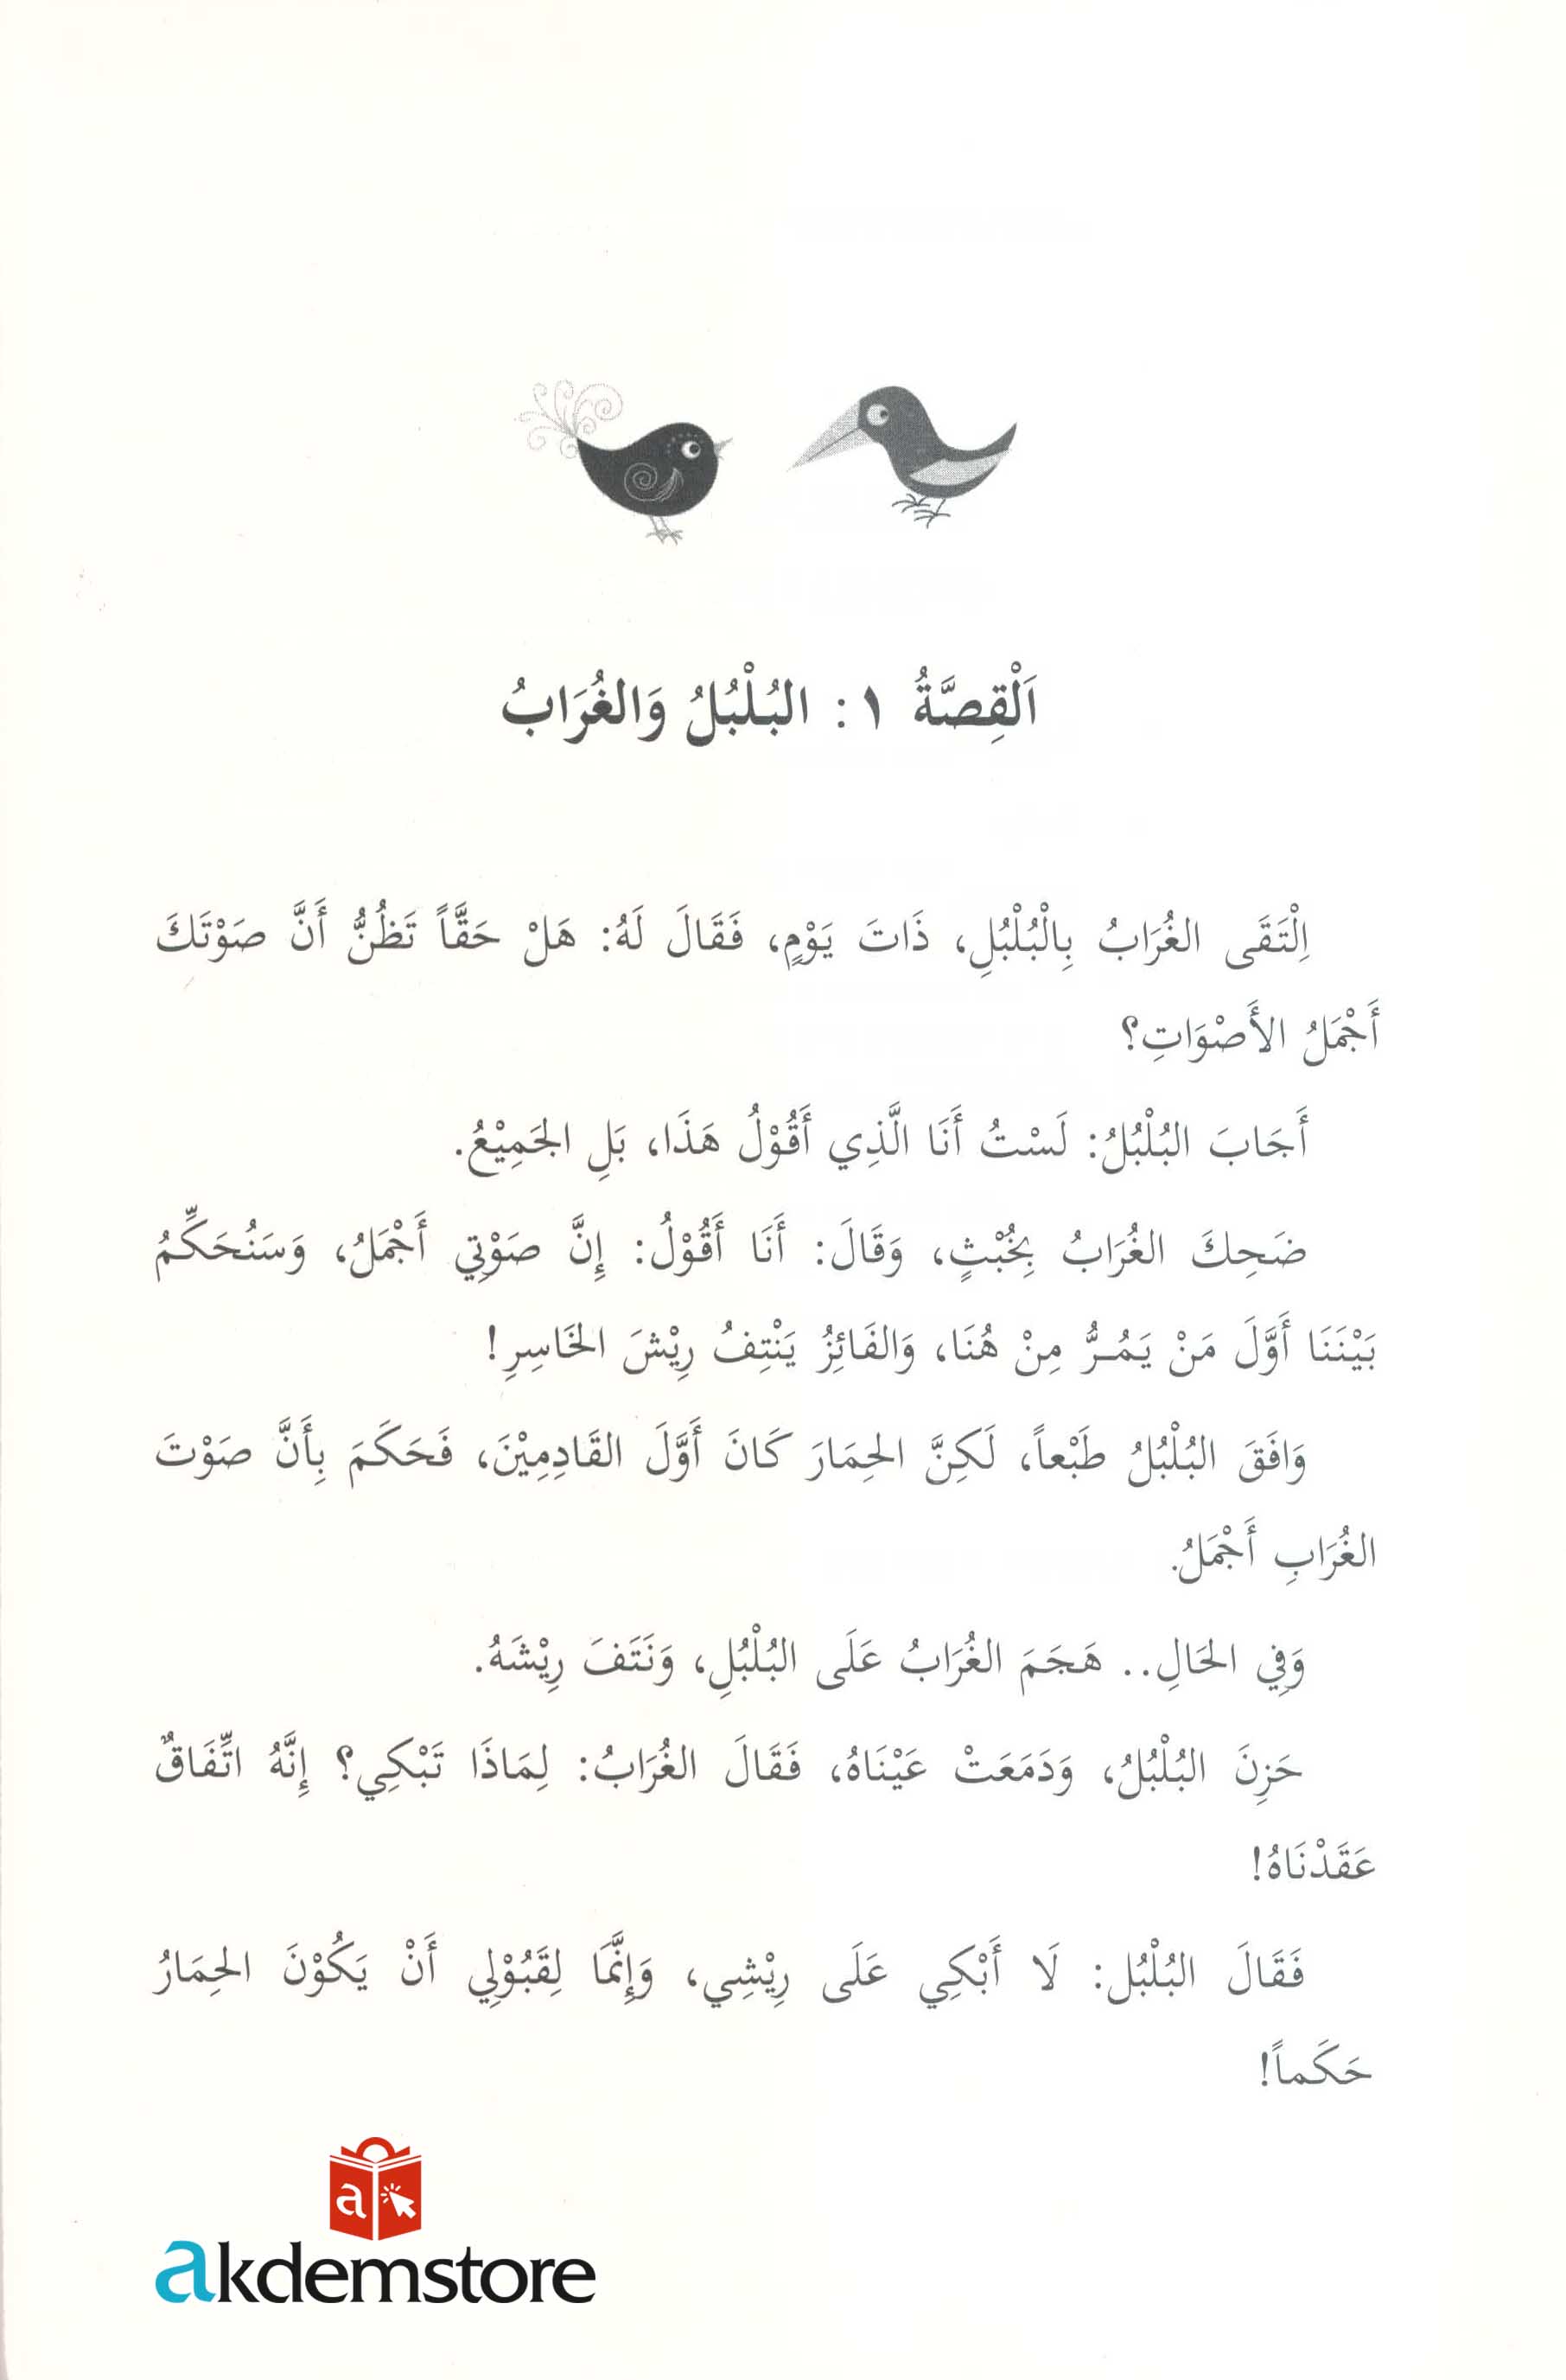 اَلْقِصَّةُ ١: البُلْبُلُ وَالغُرَابُ
اِلْتَقَى الغُرَابُ بِالْبُلْبُلِ، ذَاتَ يَوْمٍ، فَقَالَ لَهُ: هَلْ حَقَّاً تَظُنُّ أَنَّ صَوْتَكَ
أَجْمَلُ الأَصْوَاتِ؟
أَجَابَ البُلْبُلُ: لَسْتُ أَنَا الَّذِي أَقُوْلُ هَذَا، بَلِ الجَمِيْعُ.
ضَحِكَ الغُرَابُ بِخُبْثٍ، وَقَالَ: أَنَا أَقُوْلُ: إِنَّ صَوْتِي أَجْمَلُ، وَسَنُحَكِّمُ
بَيْنَنَا أَوَّلَ مَنْ يَمُـرُّ مِنْ هُنَا، وَالفَائِزُ يَنْتِفُ رِيْشَ الخَاسِرِ!
وَافَقَ البُلْبُلُ طَبْعاً، لَكِنَّ الحِمَارَ كَانَ أَوَّلَ القَادِمِيْنَ، فَحَكَمَ بِأَنَّ صَوْتَ
الغُرَابِ أَجْمَلُ.
وَفِي الحَالِ.. هَجَمَ الغُرَابُ عَلَى البُلْبُلِ، وَنَتَفَ رِيْشَهُ.
حَزِنَ البُلْبُلُ، وَدَمَعَتْ عَيْنَاهُ، فَقَالَ الغُرَابُ: لِمَاذَا تَبْكِي؟ إِنَّهُ اتِّفَاقٌ
عَقَدْنَاهُ!
فَقَالَ البُلْبُل: لَا أَبْكِي عَلَى رِيْشِي، وَإِنَّمَا لِقَبُوْلِي أَنْ يَكُوْنَ الحِمَارُ
حَكَماً!
a
akdemstore